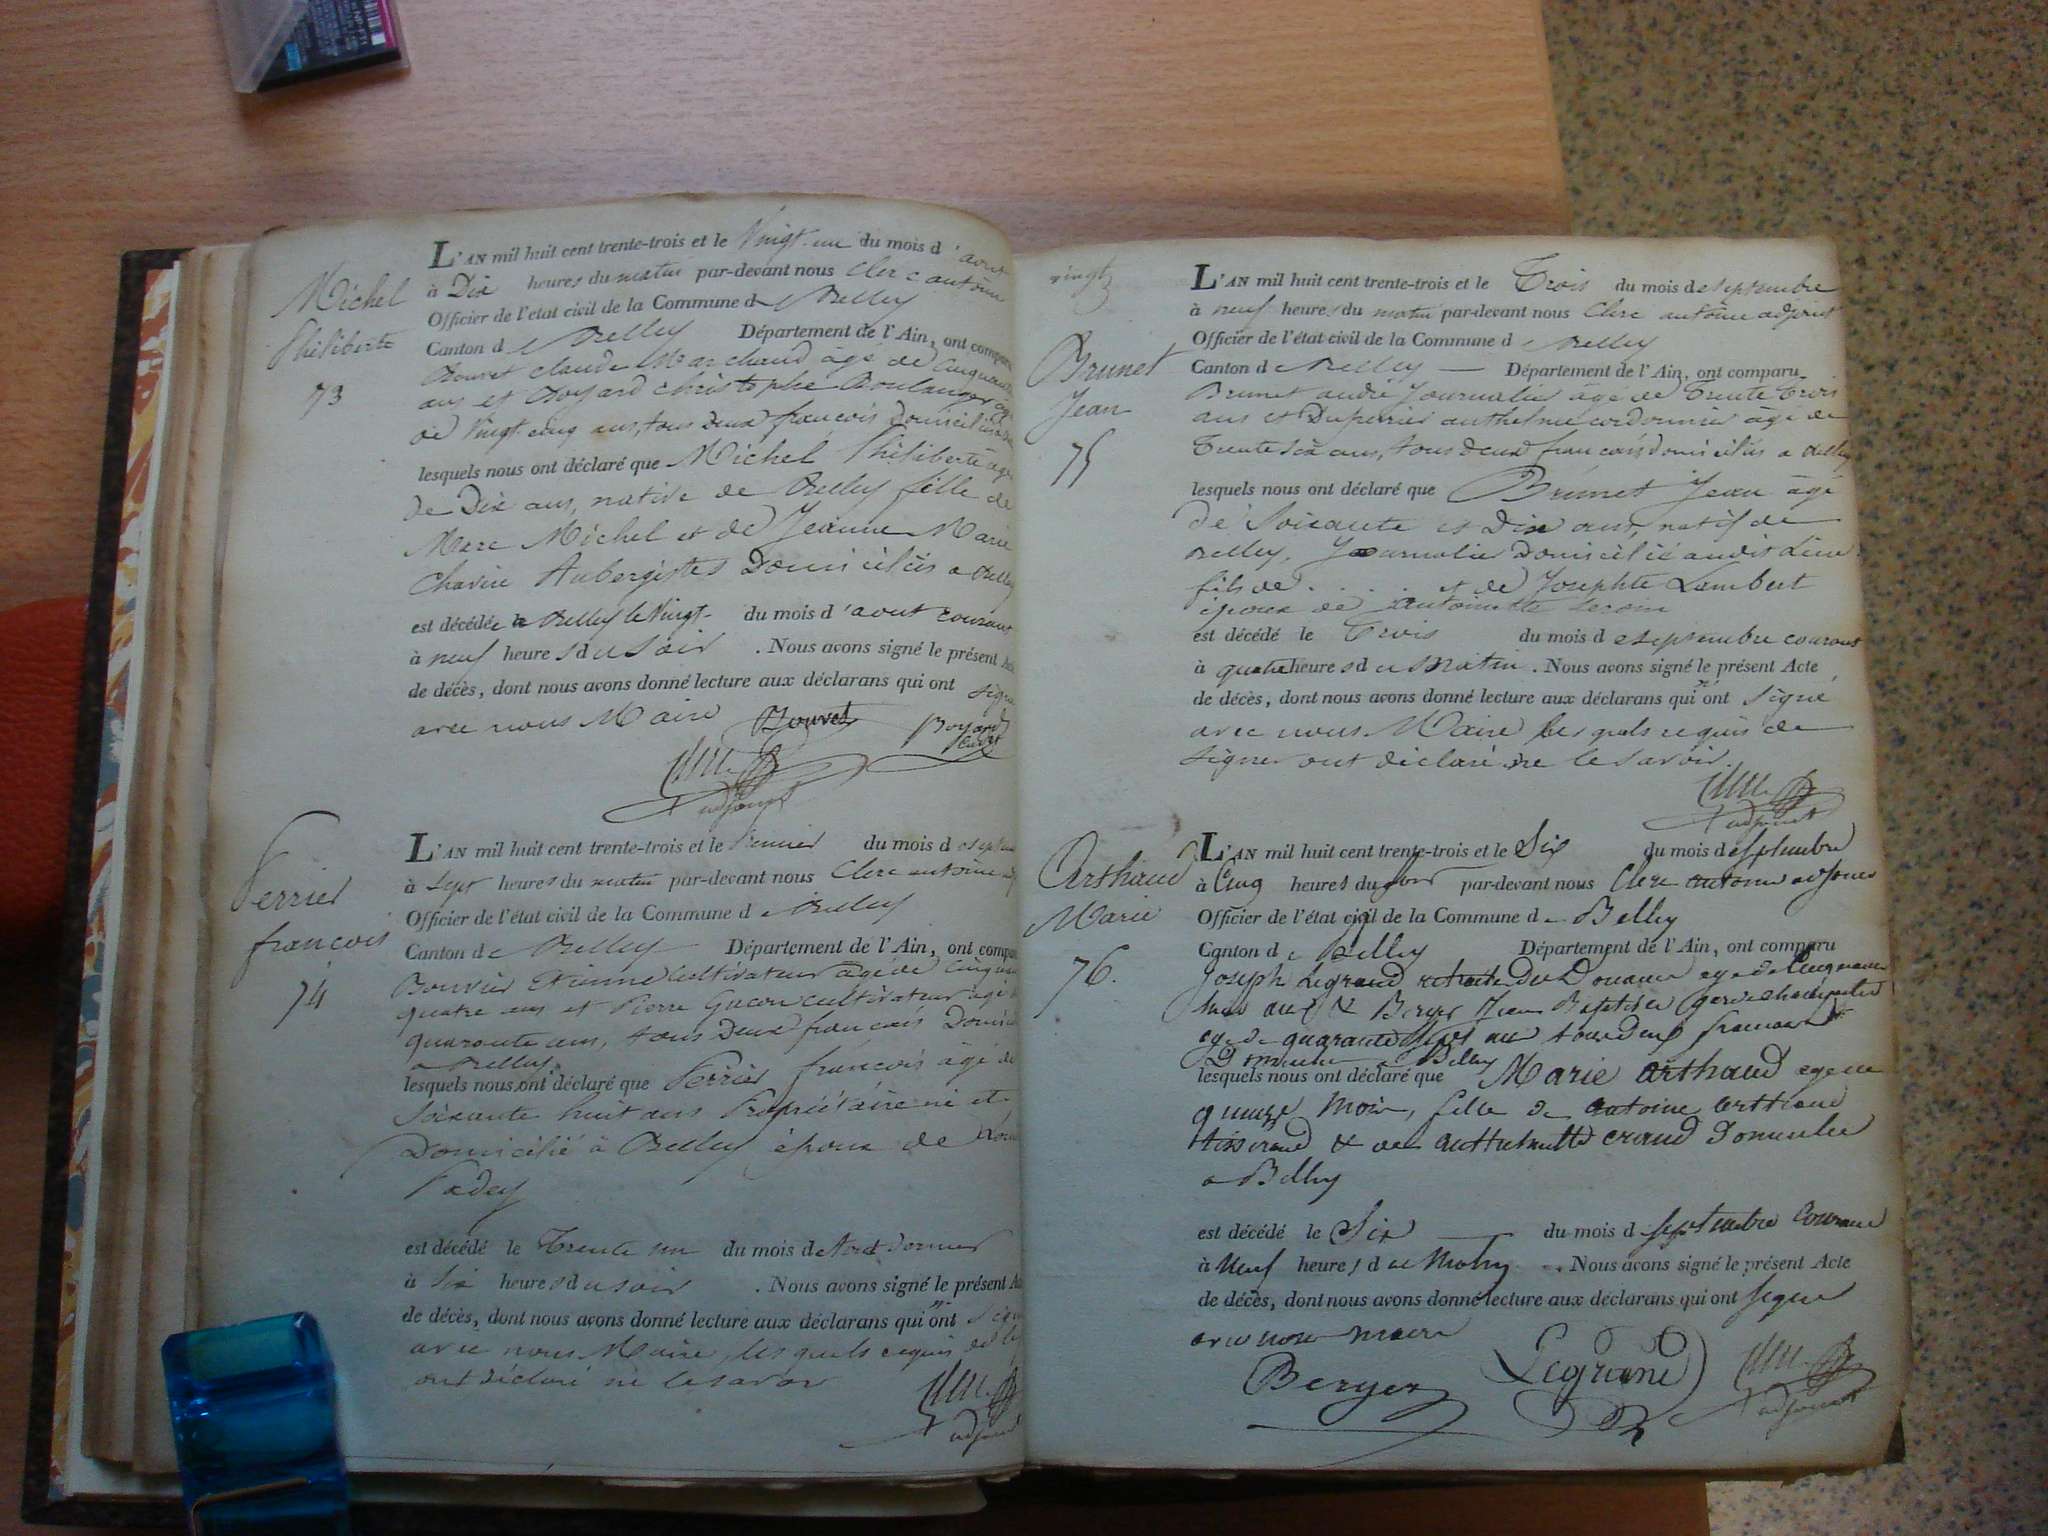 Michel
Philiberte
73
L'AN mil huit cent trente-trois et le Vingt-un du mois d'aout
à Dix heures du matin par-devant nous Clerc antoine
Officier de l'état civil de la Commune de Belley
Canton de Belley Département de l'Ain, ont comparu
Bouvet claude Marchand âgé de Cinquante
ans et Boyard christophe Boulanger âgé
de Vingt-cinq ans, tous deux francois domiciliés
lesquels nous ont déclaré que Michel Philiberte âgée
de Dix ans, native de Belley fille de
Marc Michel et de Jeanne Marie
Aubergistes Domiciliés a Belley
est décédée a Belley le Vingt du mois d'aout courant
à neuf heures du soir . Nous avons signé le présent Acte
de décès, dont nous avons donné lecture aux déclarans qui ont signé
avec nous Maire Bouvet Boyard
adjoint
Perrier
françois
74
L'AN mil huit cent trente-trois et le Premier du mois de septembre
à Sept heures du matin par-devant nous Clerc antoine adj
Officier de l'état civil de la Commune de Belley
Canton de Belley Département de l'Ain, ont comparu
Bouvier Etienne Cultivateur âgé de Cinquante
quatre ans et Pierre cultivateur âgé de
quarante ans, tous Deux français Domiciliés
a Belley
lesquels nous ont déclaré que Perrier françois âgé de
Soixante huit ans Propriétaire né et
Domicilié à Belley époux de
est décédé le Trente un du mois de Aout dernier
à Six heures du soir . Nous avons signé le présent Acte
de décès, dont nous avons donné lecture aux déclarans qui n'ont signé
avec nous Maire, les quels requis de
ont déclaré ne le savoir
adjoint
vingt
Brunet
Jean
75
L'AN mil huit cent trente-trois et le Trois du mois de septembre
à neuf heures du matin par-devant nous Clerc antoine adjoint
Officier de l'état civil de la Commune de Belley
Canton de Belley Département de l'Ain, ont comparu
Brunet andré Journalier âgé de Trente Trois
ans et Duperrier anthelme cordonnier âgé de
Trente six ans, tous deux français domiciliés a Belley
lesquels nous ont déclaré que Brunet Jean âgé
de Soixante et Dix ans, natif de
Belley, Journalier Domicilié audit Lieu
fils de . . . . et de Josephte Lambert
époux de antoinette
est décédé le Trois du mois de septembre courant
à quatre heures du Matin . Nous avons signé le présent Acte
de décès, dont nous avons donné lecture aux déclarans qui n'ont signé
avec nous Maire les quels requis de
signer ont déclaré ne le savoir.
adjoint
Arthaud
Marie
76.
L'AN mil huit cent trente-trois et le Six du mois de septembre
à Cinq heures du soir par-devant nous Clerc antoine adjoint
Officier de l'état civil de la Commune de Belley
Canton de Belley Département de l'Ain, ont comparu
Joseph Legrand retraité Des Douane agé de Cinquante
trois ans & Berger Jean Baptiste garde champetre
agé de quarante sept ans tous deux francais
Domicilies a Belley
lesquels nous ont déclaré que Marie Arthaud agee de
quinze mois, fille de antoine Arthaud
tisserand & de anthelmette domicilies
a Belley
est décédé le Six du mois de septembre courant
à Neuf heures du Matin . Nous avons signé le présent Acte
de décès, dont nous avons donné lecture aux déclarans qui ont signé
avec nous maire
Berger Legrand
adjoint